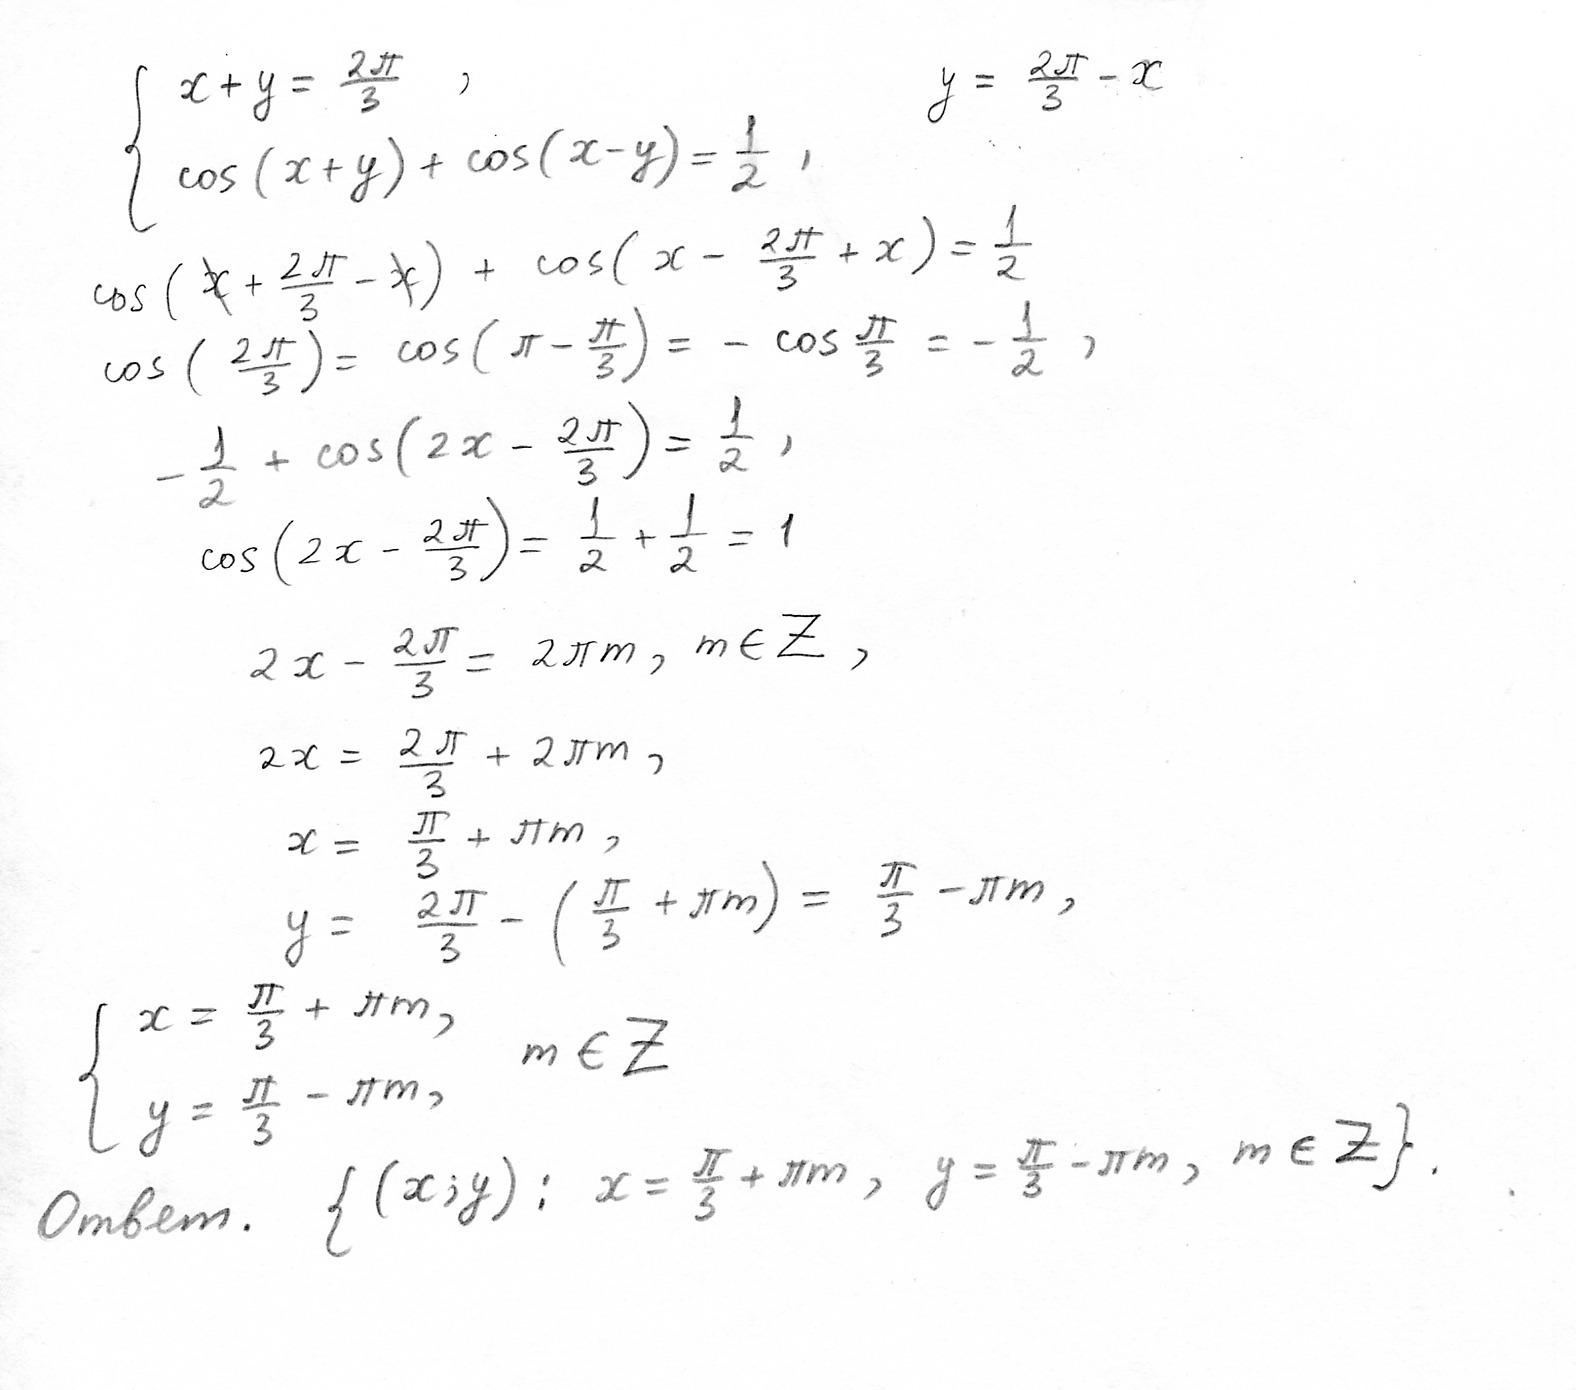 { x + y = 2π/3 , y = 2π/3 - x
cos(x+y) + cos(x-y) = 1/2 ,
cos(x + 2π/3 - x) + cos(x - 2π/3 + x) = 1/2
cos(2π/3) = cos(π - π/3) = - cos π/3 = - 1/2 ,
- 1/2 + cos(2x - 2π/3) = 1/2 ,
cos(2x - 2π/3) = 1/2 + 1/2 = 1
2x - 2π/3 = 2πm, m ∈ Z ,
2x = 2π/3 + 2πm ,
x = π/3 + πm ,
y = 2π/3 - (π/3 + πm) = π/3 - πm ,
{ x = π/3 + πm, m ∈ Z
y = π/3 - πm,
Ответ. {(x;y): x = π/3 + πm , y = π/3 - πm, m ∈ Z}.